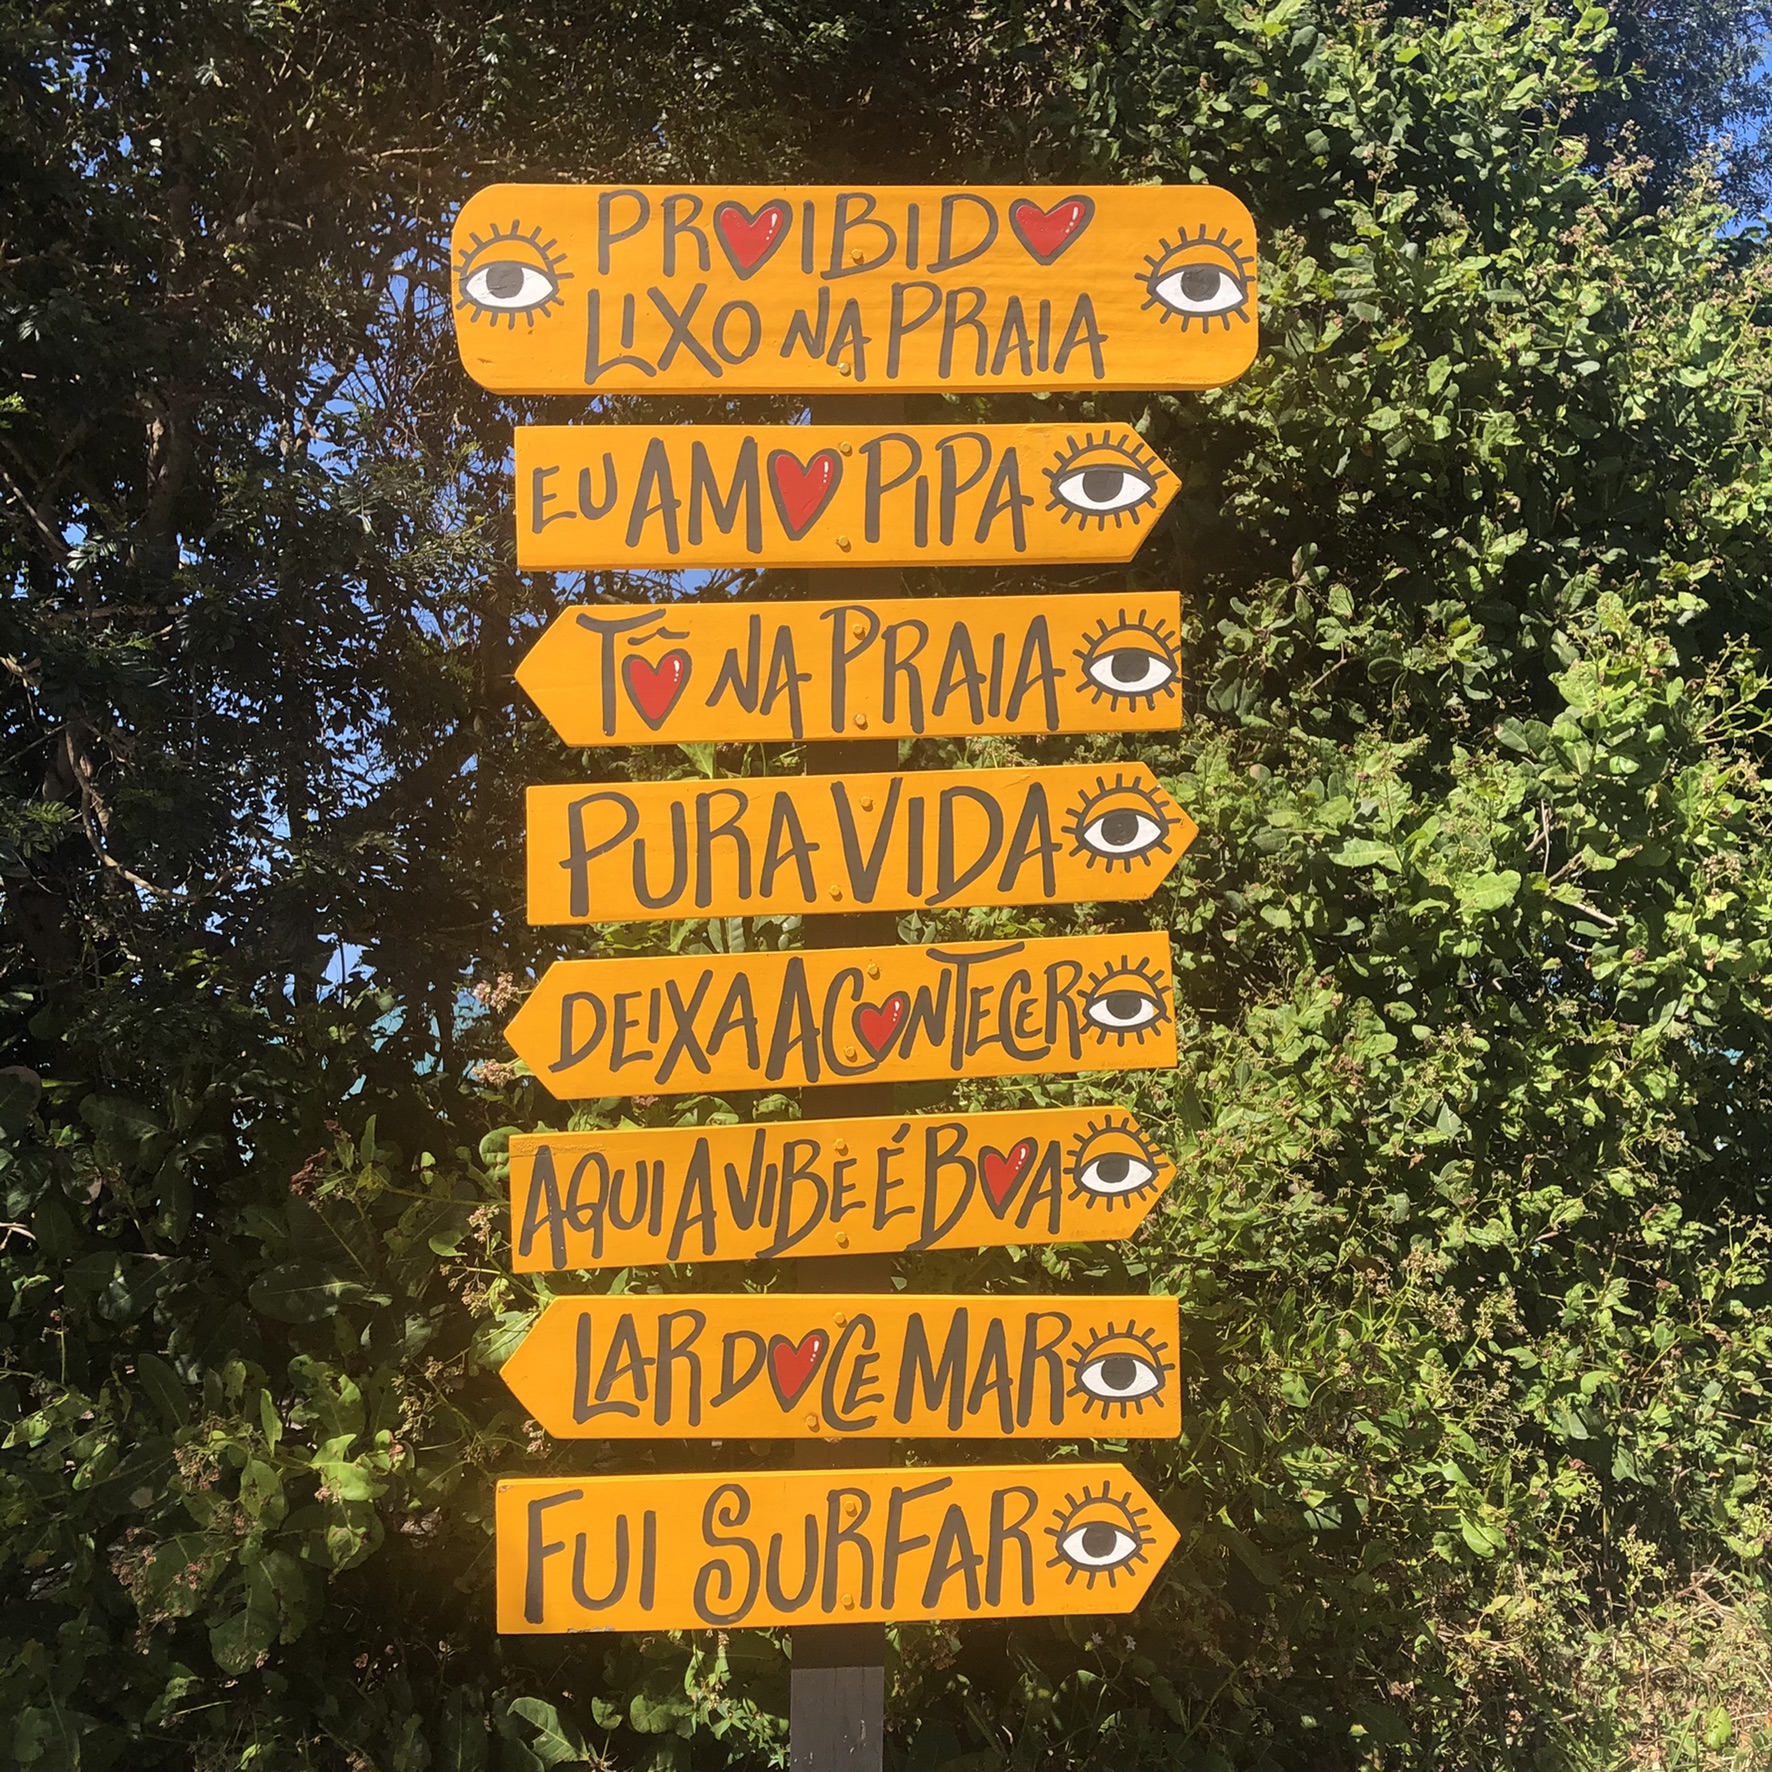 PROIBIDO
LIXO NA PRAIA
EU AMO PIPA
TÔ NA PRAIA
PURA VIDA
DEIXA ACONTECER
AQUI A VIBE É BOA
LAR DOCE MAR
FUI SURFAR